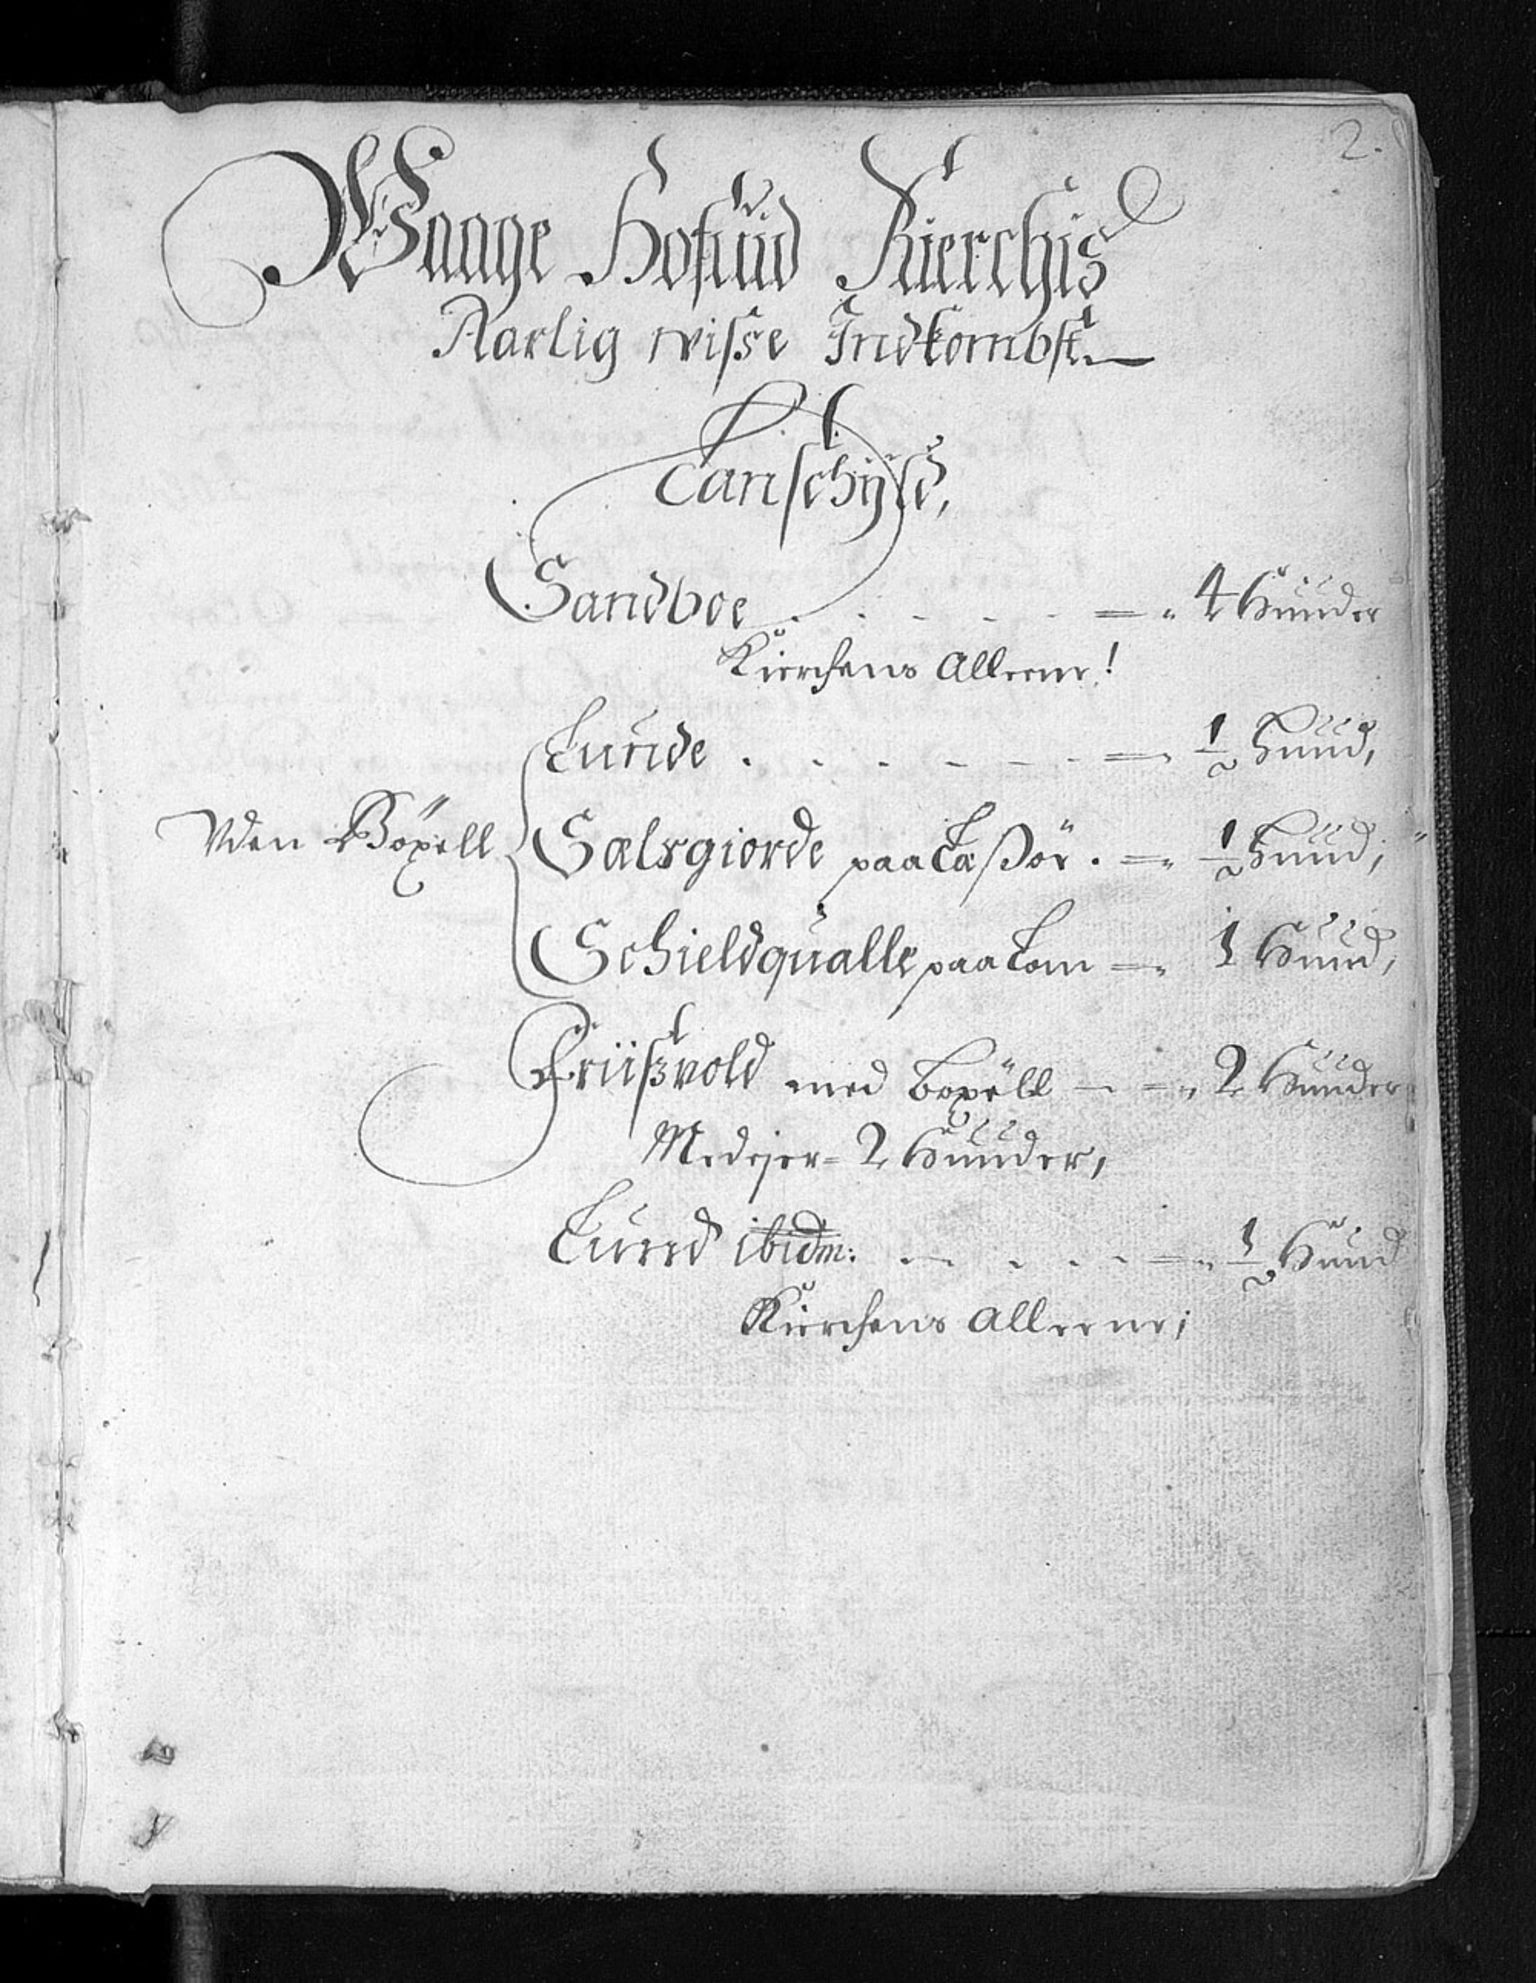 2.
Waage Hofuid Kierchis
Aarlig wisse Indkombst
Lanschyld,
Sandboe . . . . . = 4 Huuder
Kierchens Alleene!
Lunde . . . . . = 1/2 Huud,
Vden Böxell Sælsgiorde paa Læßör . = 1/2 Huud,
Schieldqualle paa Lom = 1 Huud,
Friißvold med boxell - = 2 Huuder
Medejer = 2 Huuder,
Lund ibidm: . . . . = 1/2 Huud
Kierchens Alleene;